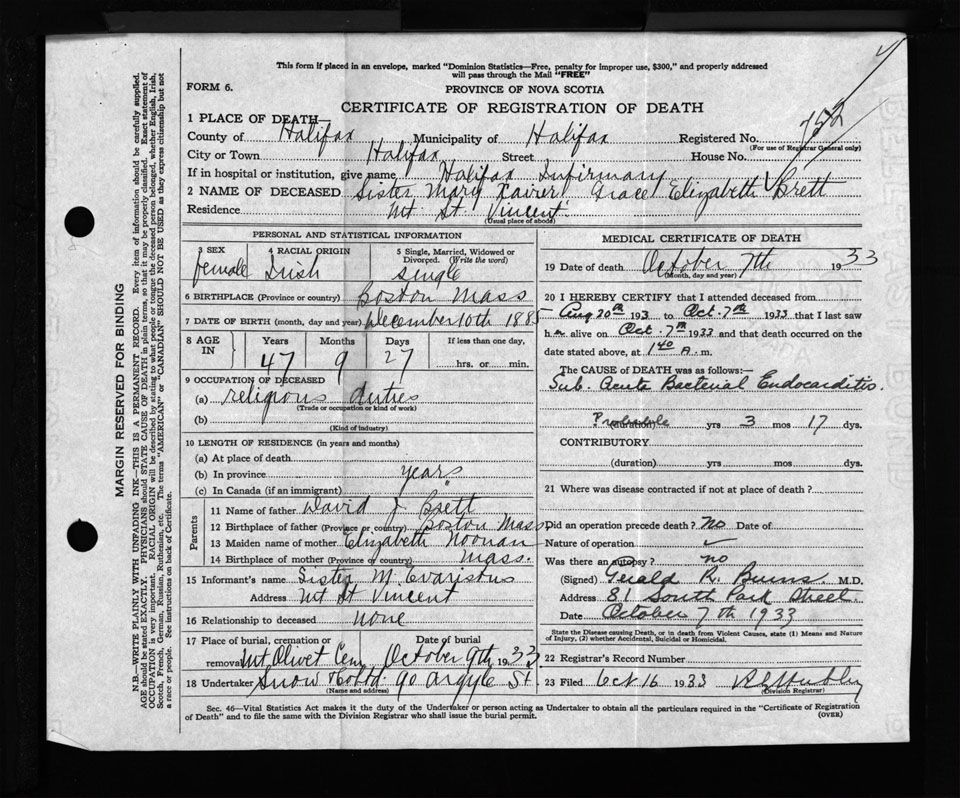 This form if placed in an envelope, marked "Dominion Statistics—Free, penalty for improper use, $300," and properly addressed
will pass through the Mail "FREE"
FORM 6.
PROVINCE OF NOVA SCOTIA
CERTIFICATE OF REGISTRATION OF DEATH
1 PLACE OF DEATH—
County of Halifax Municipality of Halifax Registered No. 752
(For use of Registrar General only)
City or Town Halifax Street House No.
If in hospital or institution, give name Halifax Infirmary
2 NAME OF DECEASED Sister Mary Xavier Grace Elizabeth Brett
Residence Mt. St. Vincent
(Usual place of abode)
PERSONAL AND STATISTICAL INFORMATION
3 SEX 4 RACIAL ORIGIN 5 Single, Married, Widowed or
Divorced. (Write the word)
female Irish single
6 BIRTHPLACE (Province or country) Boston Mass
7 DATE OF BIRTH (month, day and year) December 10th 1885
8 AGE IN Years Months Days If less than one day,
47 9 27 hrs. or min.
9 OCCUPATION OF DECEASED
(a) religious duties
(Trade or occupation or kind of work)
(b)
(Kind of industry)
10 LENGTH OF RESIDENCE (in years and months)
(a) At place of death
(b) In province years
(c) In Canada (if an immigrant) "
Parents
11 Name of father David J. Brett
12 Birthplace of father (Province or country) Boston Mass.
13 Maiden name of mother Elizabeth Noonan
14 Birthplace of mother (Province or country) Mass.
15 Informant's name Sister M. Evaristus
Address Mt St Vincent
16 Relationship to deceased none
17 Place of burial, cremation or Date of burial
removal Mt. Olivet Cem October 9th 1933
18 Undertaker Snow & Co Ltd. 90 Argyle St.
(Name and address)
MEDICAL CERTIFICATE OF DEATH
19 Date of death October 7th 1933
(Month, day and year)
20 I HEREBY CERTIFY that I attended deceased from
Aug 20th 193 to Oct. 7th 1933 that I last saw
h alive on Oct. 7th 1933 and that death occurred on the
date stated above, at 1 40 A. m.
The CAUSE OF DEATH was as follows:—
Sub. Acute Bacterial Endocarditis.
Probably (duration) yrs 3 mos 17 dys.
CONTRIBUTORY
(duration) yrs mos dys.
21 Where was disease contracted if not at place of death?
Did an operation precede death? no Date of
Nature of operation
Was there an autopsy? no
(Signed) Gerald R. Burns M.D.
Address 81 South Park Street.
Date October 7th 1933
State the Disease causing Death, or in death from Violent Causes, state (1) Means and Nature
of Injury, (2) whether Accidental, Suicidal or Homicidal.
22 Registrar's Record Number
23 Filed Oct 16 1933
(Division Registrar)
Sec. 46—Vital Statistics Act makes it the duty of the Undertaker or person acting as Undertaker to obtain all the particulars required in the "Certificate of Registration
of Death" and to file the same with the Division Registrar who shall issue the burial permit.
(OVER)
MARGIN RESERVED FOR BINDING
N.B.—WRITE PLAINLY WITH UNFADING INK—THIS IS A PERMANENT RECORD. Every item of information should be carefully supplied.
AGE should be stated EXACTLY. PHYSICIANS should STATE CAUSE OF DEATH in plain terms, so that it may be properly classified. Exact statement of
OCCUPATION is very important. RACIAL ORIGIN will be described by stating to what people or tongue the deceased person belonged, whether English, Irish,
Scotch, French, German, Russian, Ruthenian, etc. The terms "AMERICAN" or "CANADIAN" SHOULD NOT BE USED as they express citizenship but not
a race or people. See instructions on back of Certificate.